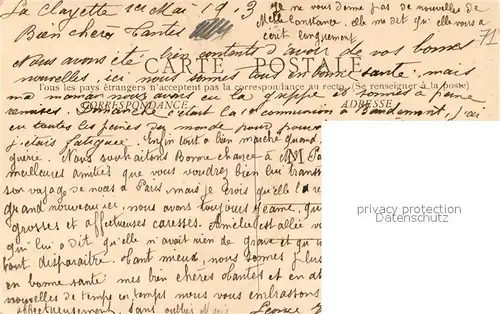 La Clayette 1er Mai 1913
Je ne vous donne pas de nouvelles de
Melle Constance. Elle me dit qu'elle vous a
écrit longuement
71
Bien chères Tantes
Nous avons été bien contents d'avoir de vos bonnes
CARTE POSTALE
nouvelles, ici nous sommes tous en bonne santé, mais
Tous les pays étrangers n'acceptent pas la correspondance au recto. (Se renseigner à la poste)
ma maman nous avons eu la grippe et sommes à peine
CORRESPONDANCE
ADRESSE
remises. Dimanche c'était la 1ère communion à J'ai
eu toutes les peines du monde pour
j'étais fatiguée. Enfin tout a bien marché quand
guérie. Nous souhaitons Bonne chance à
M
meilleures amitiés que vous voudrez bien lui
son voyage de noces à Paris, mais je crois qu'elle
grand nouveau ser, nous avons toujours Jeanne, qui
grosses et affectueuses caresses. Amélie est allée
qui lui a dit qu'elle n'avait rien de grave et qu'
tout disparaître. Tant mieux, nous sommes plus
en bonne santé mes bien chères Tantes et en
nouvelles de temps en temps nous vous embrassons
affectueusement, sans oublier Marie
Léonce
privacy protection
Datenschutz